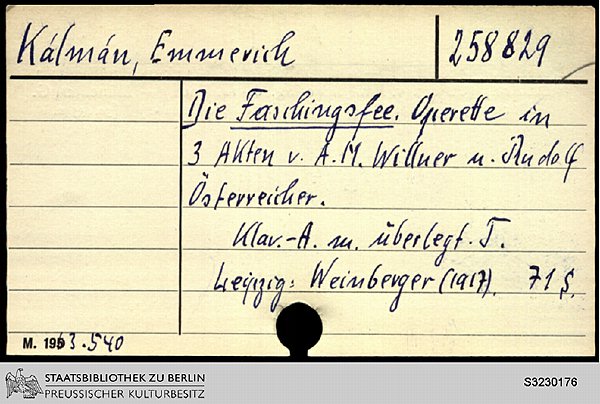 Kálmán, Emmerich
258829
Die Faschingsfee. Operette in
3 Akten v. A. M. Willner u. Rudolf
Österreicher.
Klav.-A. m. überlegt. T.
Leipzig: Weinberger (1917). 71 S.
M. 1963.540
STAATSBIBLIOTHEK ZU BERLIN
PREUSSISCHER KULTURBESITZ
S3230176